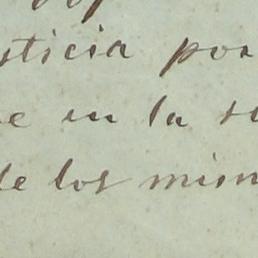 sticia por
e en la se
de los mism